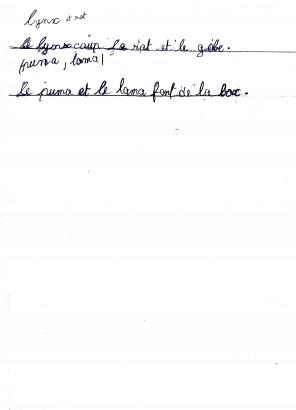 lynx et rat
Le lynx coup le rat et le gobe.
puma, lama
Le puma et le lama font de la box.